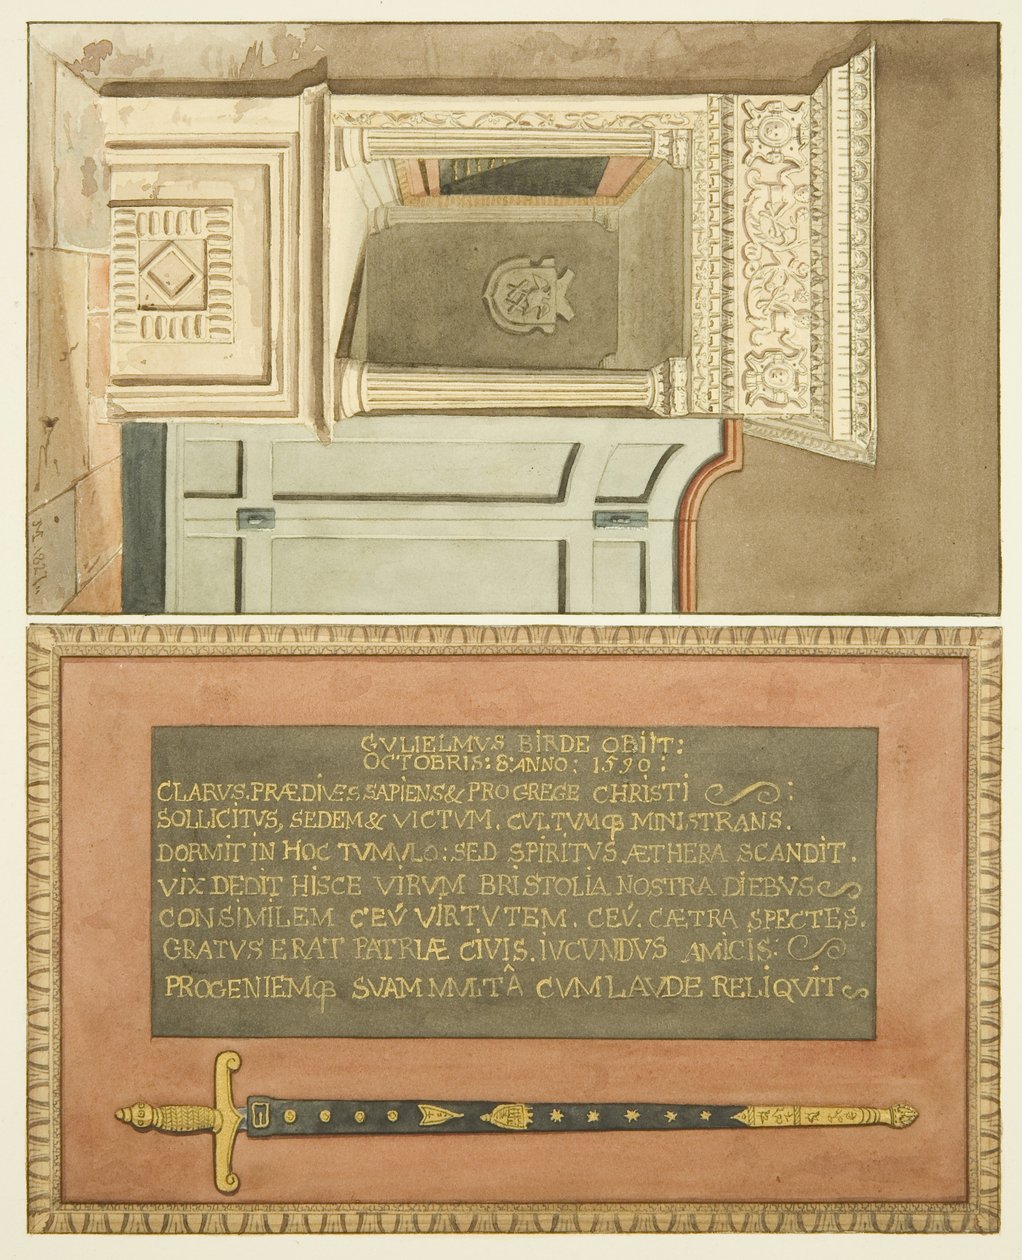 GVLIELMVS BIRDE OBIIT:
OCTOBRIS: 8: ANNO: 1590:
CLARVS. PRÆDIVES SAPIENS & PRO GREGE CHRISTI :
SOLLICITVS, SEDEM & VICTVM. CVLTVMQ3 MINISTRANS.
DORMIT IN HOC TVMVLO: SED SPIRITVS ÆTHERA SCANDIT.
VIX DEDIT HISCE VIRVM BRISTOLIA NOSTRA DIEBVS
CONSIMILEM CEV́ VIRTVTEM. CEV́. CÆTRA SPECTES.
GRATVS ERAT PATRIÆ CIVIS. IVCVNDVS AMICIS:
PROGENIEMQ3 SVAM MVLTÂ CVM LAVDE RELIQVIT
1827